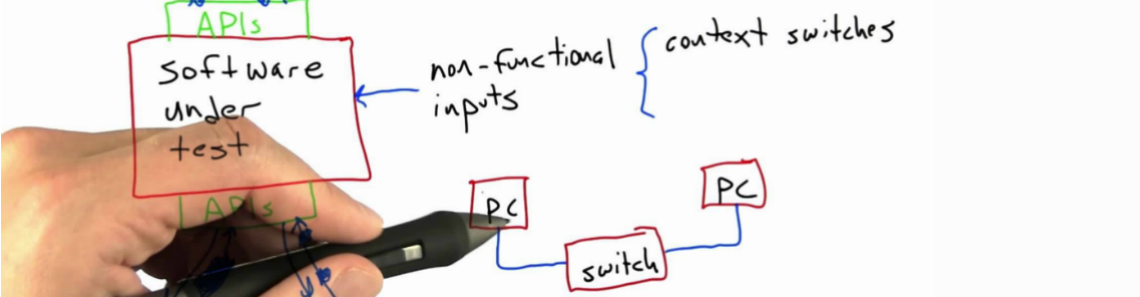 APIs
software
under
test
non-functional
inputs
context switches
APIs
PC
PC
switch